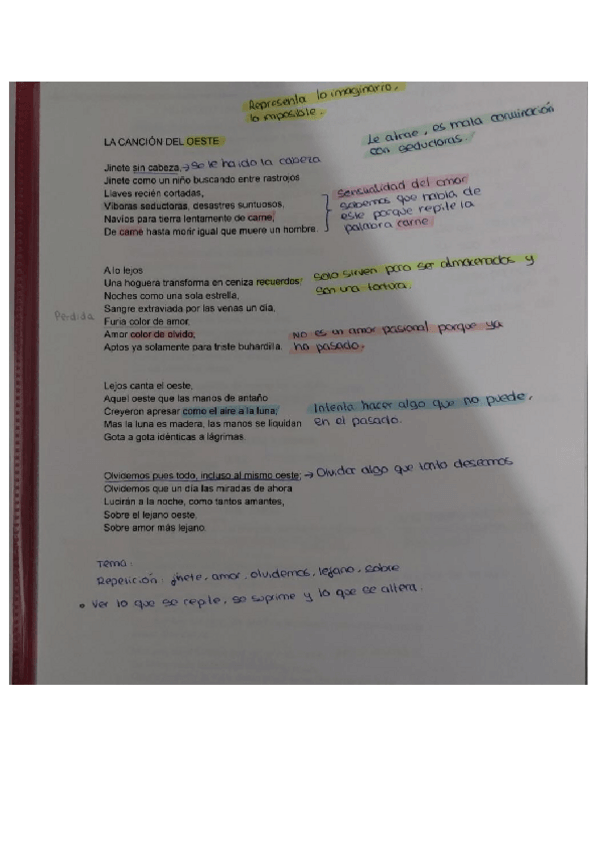 Representa lo imaginario,
lo imposible.
Le atrae, es mala convinación
con seductoras.
LA CANCIÓN DEL OESTE
Jinete sin cabeza, → Se le ha ido la cabeza
Jinete como un niño buscando entre rastrojos
Llaves recién cortadas,
Víboras seductoras, desastres suntuosos,
Navíos para tierra lentamente de carne,
De carne hasta morir igual que muere un hombre.
Sensualidad del amor
sabemos que habla de
este porque repite la
palabra carne.
A lo lejos
Una hoguera transforma en ceniza recuerdos,
Noches como una sola estrella,
Sangre extraviada por las venas un día,
Furia color de amor,
Amor color de olvido,
Aptos ya solamente para triste buhardilla.
Solo sirven para ser almacenados y
son una tortura.
Perdida
No es un amor pasional porque ya
ha pasado.
Lejos canta el oeste,
Aquel oeste que las manos de antaño
Creyeron apresar como el aire a la luna;
Mas la luna es madera, las manos se liquidan
Gota a gota idénticas a lágrimas.
Intenta hacer algo que no puede,
en el pasado.
Olvidemos pues todo, incluso al mismo oeste; → Olvidar algo que tanto deseamos
Olvidemos que un día las miradas de ahora
Lucirán a la noche, como tantos amantes,
Sobre el lejano oeste,
Sobre amor más lejano.
Tema:
Repetición: jinete, amor, olvidemos, lejano, sobre
• Ver lo que se repite, se suprime y lo que se altera.